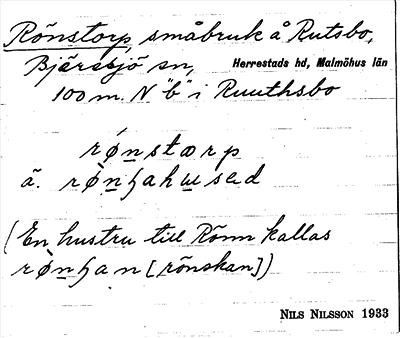 Rönstorp, småbruk å Rutsbo,
Bjäresjö sn, Herrestads hd, Malmöhus län
100 m. N "b" i Ruuthsbo
rǿnstɑrp
ä. rø̀nʃahused
(En hustru till Rönn kallas
rø̀nʃan [rönskan])
NILS NILSSON 1933